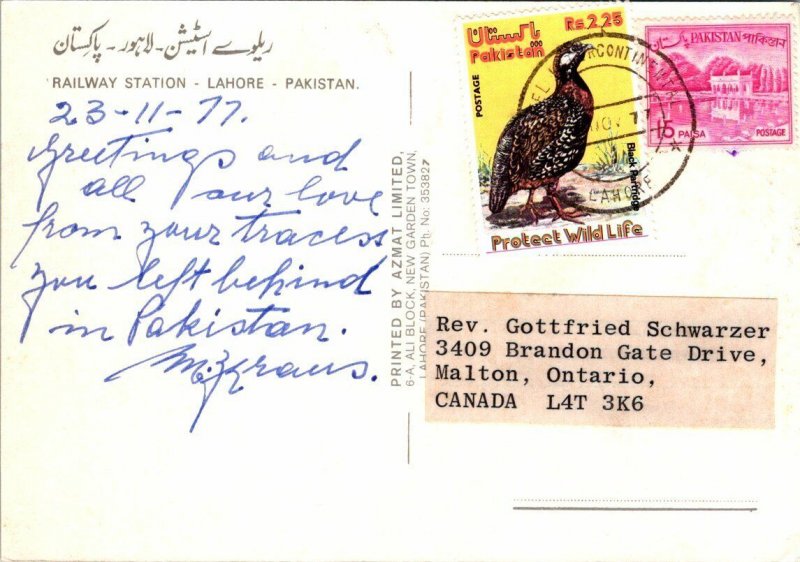 ریلوے اسٹیشن - لاہور - پاکستان
RAILWAY STATION - LAHORE - PAKISTAN.
23-11-77.
Greetings and
all our love
from your traces
you left behind
in Pakistan.
PRINTED BY AZMAT LIMITED,
6-A, ALI BLOCK, NEW GARDEN TOWN,
LAHORE (PAKISTAN) Ph. No: 353827
پاکستان
Rs.2.25
Pakistan
POSTAGE
Black Partridge
Protect Wild Life
پاکستان PAKISTAN পাকিস্তান
15 PAISA POSTAGE
INTERCONTINENTAL
NOV 77
LAHORE
Rev. Gottfried Schwarzer
3409 Brandon Gate Drive,
Malton, Ontario,
CANADA L4T 3K6